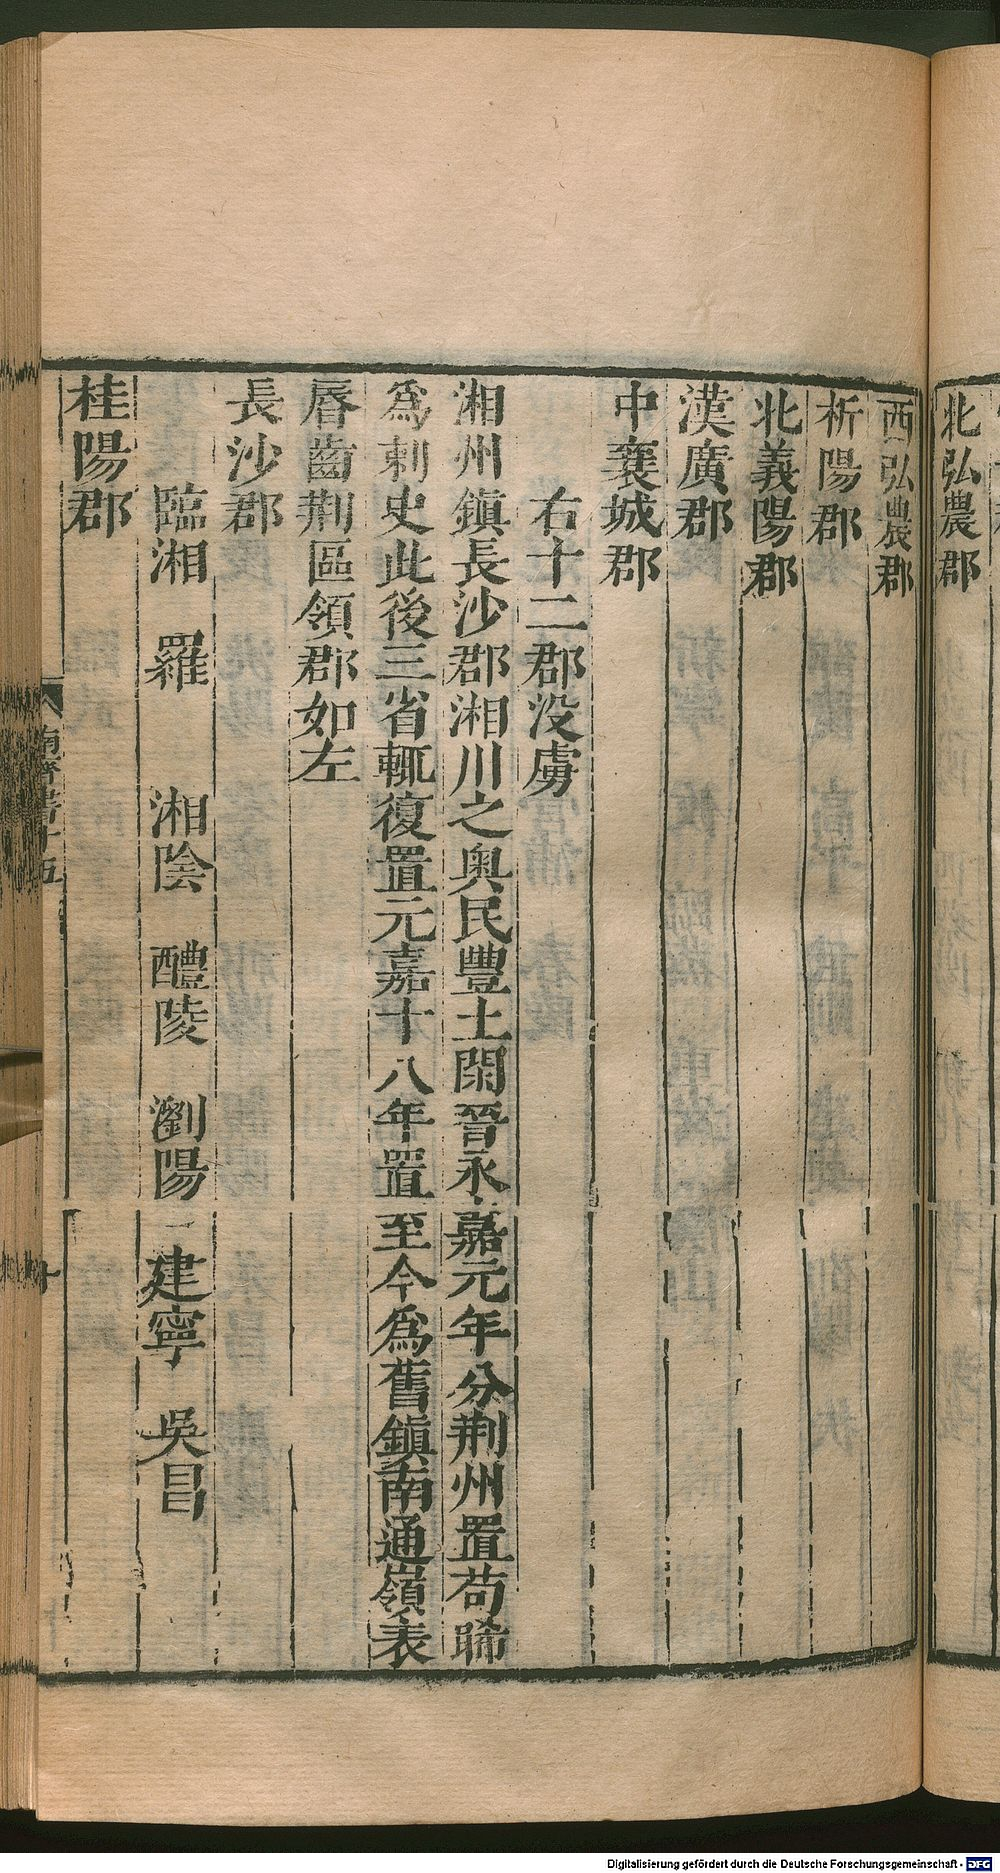 北弘農郡
西弘農郡
析陽郡
北義陽郡
漢廣郡
中襄城郡
右十二郡没虜
湘州鎮長沙郡湘川之奥民豐土閑晉永嘉元年分荆州置苟晞
爲刺史此後三省輒復置元嘉十八年置至今爲舊鎮南通嶺表
脣齒荆區領郡如左
長沙郡
臨湘 羅 湘陰 醴陵 瀏陽 建寧 吳昌
桂陽郡
南齊書十五
Digitalisierung gefördert durch die Deutsche Forschungsgemeinschaft - DFG